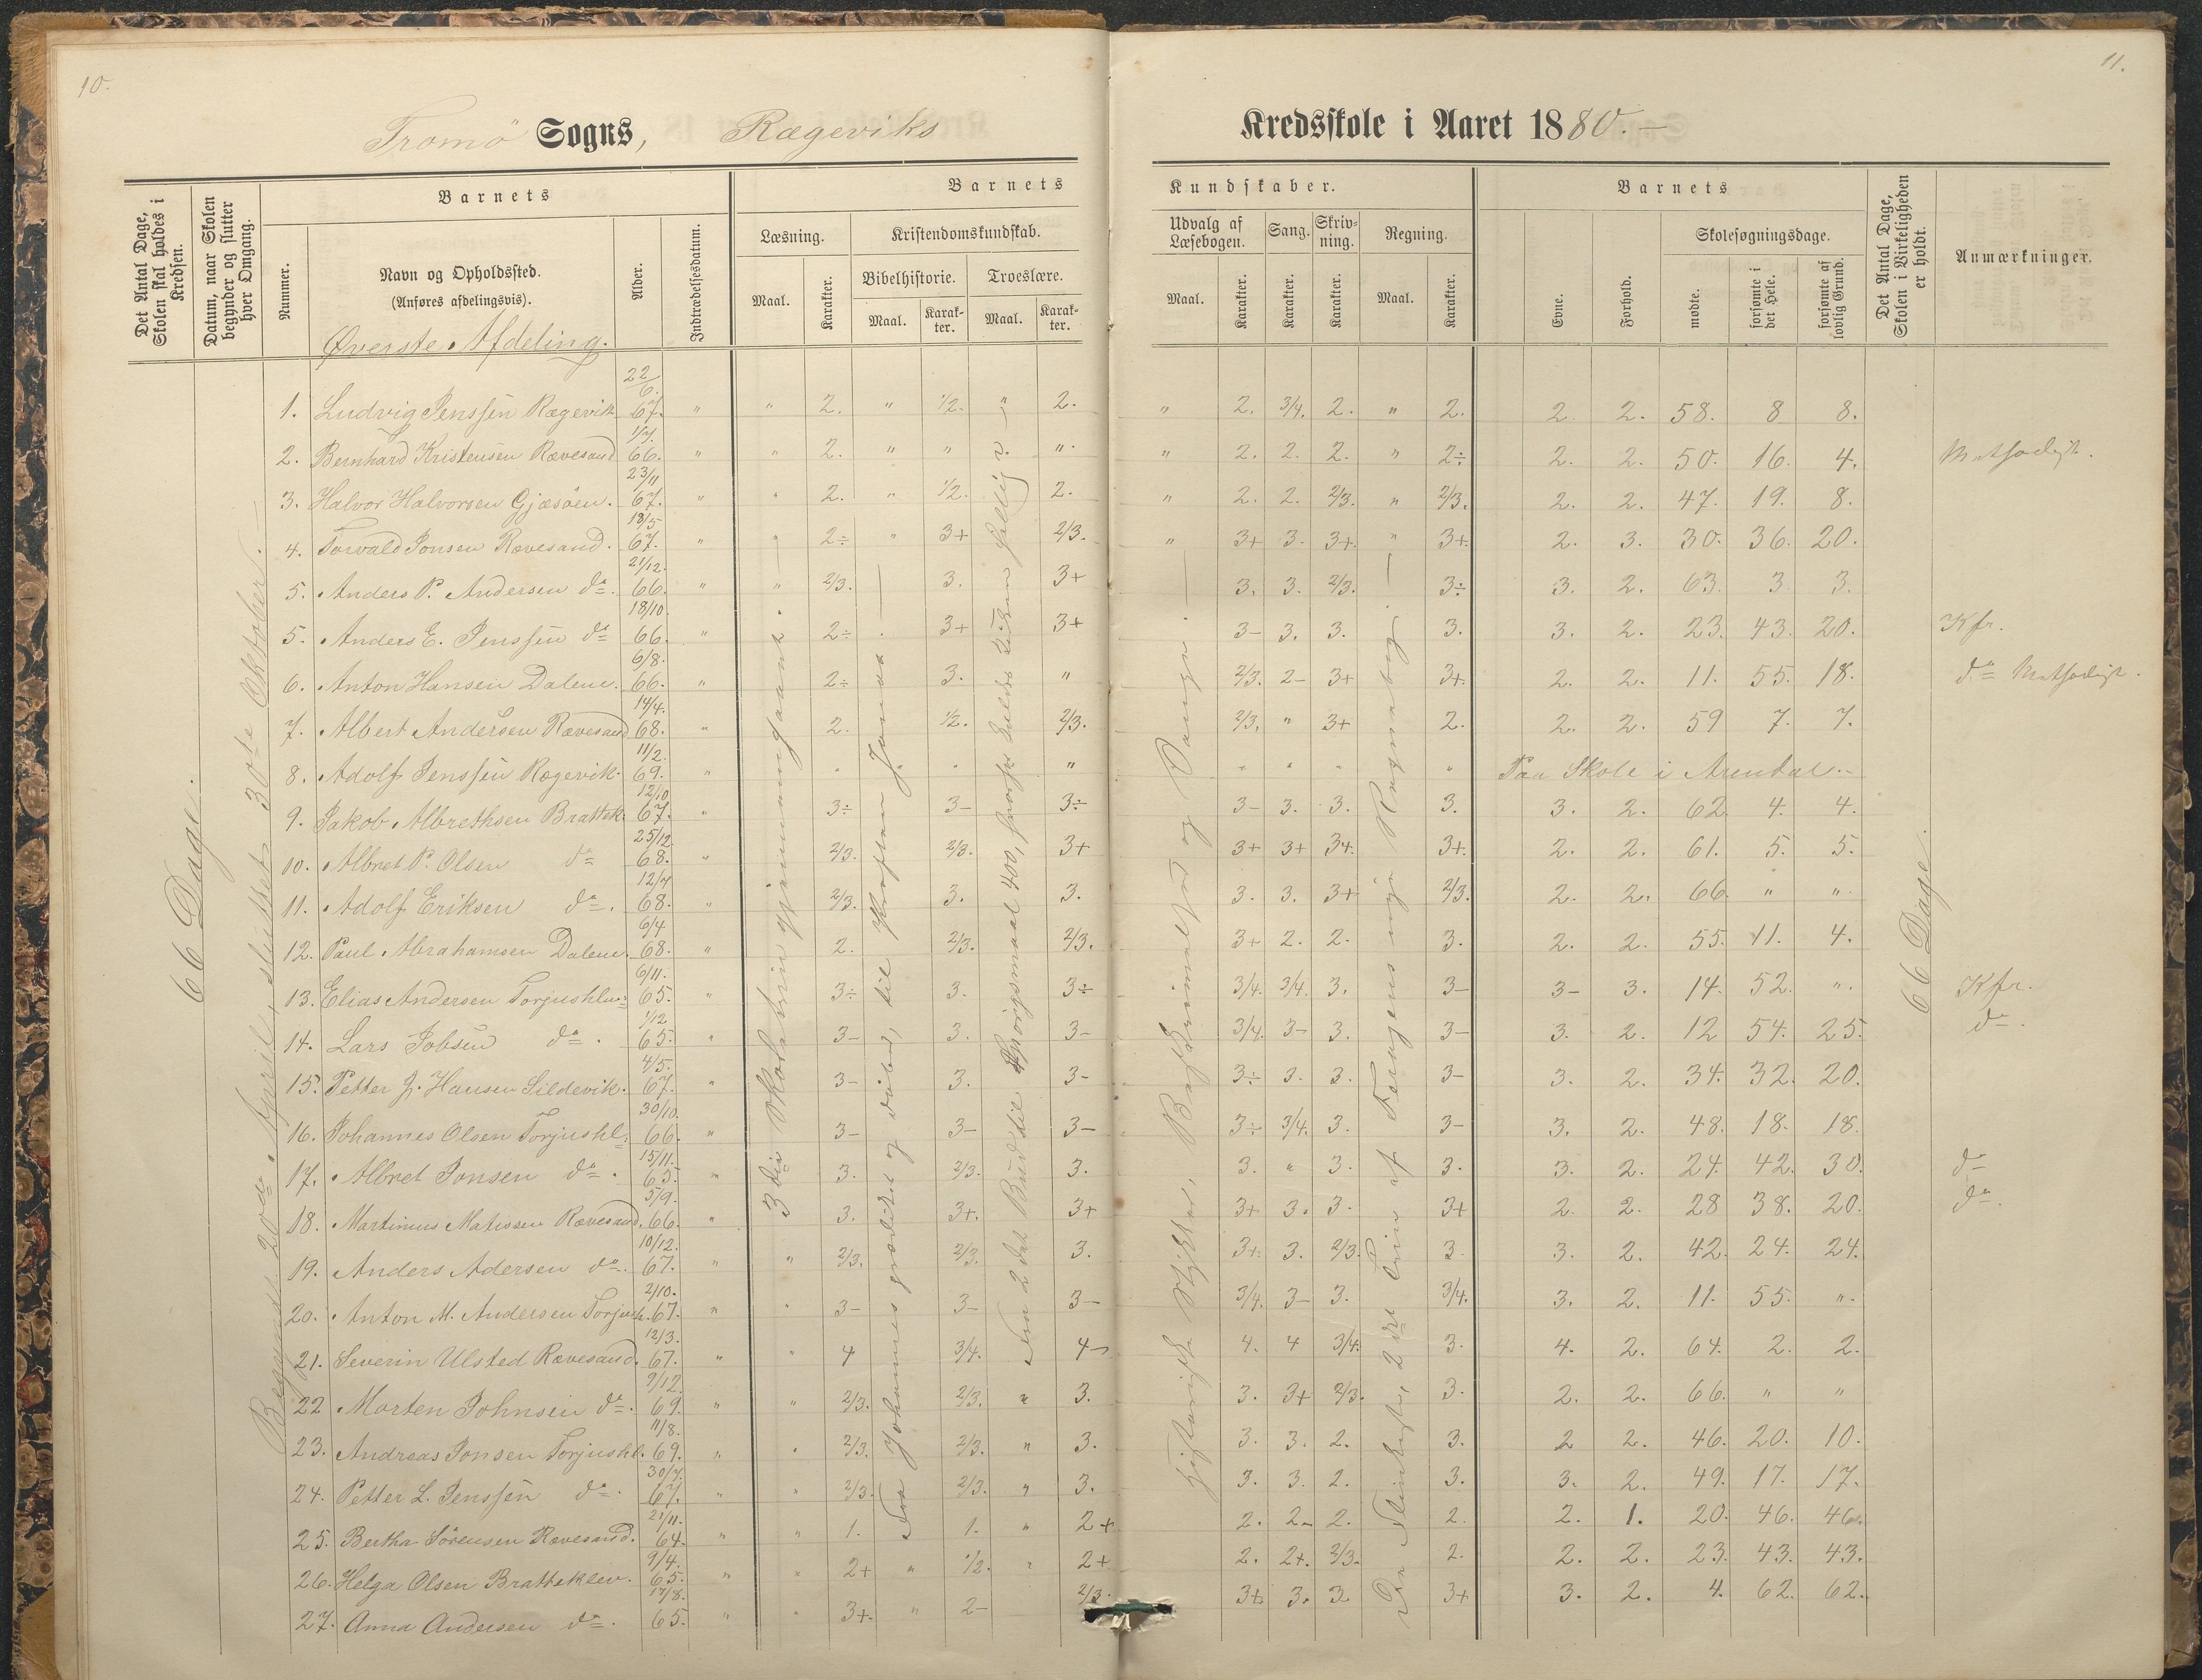 10.
11.
Tromö Sogns, Rægeviks
Kredsskole i Aaret 1880.-
Det Antal Dage, Skolen skal holdes i Kredsen.
Datum, naar Skolen begynder og slutter hver Omgang.
Barnets
Nummer.
Navn og Opholdssted.
(Anføres afdelingsvis).
Øverste Afdeling.
Alder.
Indtrædelsesdatum.
Barnets
Kundskaber.
Læsning.
Maal.
Karakter.
Kristendomskundskab.
Bibelhistorie.
Maal.
Karakter.
Troeslære.
Maal.
Karakter.
Udvalg af Læsebogen.
Maal.
Karakter.
Sang.
Karakter.
Skrivning.
Karakter.
Regning.
Maal.
Karakter.
Barnets
Evne.
Forhold.
Skolesøgningsdage.
mødte.
forsømte i det Hele.
forsømte af lovlig Grund.
Det Antal Dage, Skolen i Virkeligheden er holdt.
Anmærkninger.
66 Dage.
Begyndt 20de April, sluttet 30te Oktober.
66 Dage.
1. Ludvig Jenssen Rægevik 22/6. 67. " " 2. " 1/2. " 2. " 2. 3/4. 2. " 2. 2. 2. 58. 8 8.
2. Bernhard Kristensen Rævesand 1/7. 66. " " 2. " " ". " 2. 2. 2. " 2÷ 2. 2. 50. 16. 4.
3. Halvor Halvorsen Gjæsöen. 23/11 67. " " 2. " 1/2. 2. " 2. 2. 2/3. " 2/3. 2. 2. 47. 19. 8.
4. Torvald Jonsen Rævesand. 18/5 67. " " 2÷ " 3+ 2/3. " 3+ 3. 3+. " 3+. 2. 3. 30. 36. 20.
5. Anders P. Andersen do. 21/12. 66. " " 2/3. 3. 3+ 3. 3. 2/3. 3÷ 3. 2. 63. 3. 3.
5. Anders E. Jenssen do 18/10. 66. " 2÷ 3+ 3+ 3- 3. 3. 3. 3. 2. 23. 43. 20. Kfr.
6. Anton Hansen Dalene. 6/8. 66. " 2÷ 3. " 2/3. 2- 3+ 3+. 2. 2. 11. 55. 18. do
7. Albert Andersen Rævesand 14/4. 68. " 2. 1/2. 2/3. 2/3. " 3+ 2. 2. 2. 59 7. 7.
8. Adolf Jenssen Rægevik. 11/2. 69. " " " " " " " " Paa Skole i Arendal.-
9. Jakob Albrethsen Brattek. 12/10 67. " 3÷ 3- 3÷ 3- 3. 3. 3. 3. 2. 62. 4. 4.
10. Albret P. Olsen do 25/12. 68. " 2/3. 2/3. 3+ 3+ 3+ 3+. 3+. 2. 2. 61. 5. 5.
11. Adolf Eriksen do. 12/7 68. " 2/3. 3. 3. 3. 3. 3+ 2/3. 2. 2. 66. " ".
12. Paul Abrahamsen Dalene. 6/4 68. " 2. 2/3. 2/3. 3+ 2. 2. 3. 2. 2. 55. 11. 4.
13. Elias Andersen Torjushlm: 6/11. 65. " 3÷ 3. 3÷ 3/4. 3/4. 3. 3- 3- 3. 14. 52. ". Kfr.
14. Lars Jobsen do. 1/12 65. " 3- 3. 3- 3/4. 3- 3. 3- 3. 2. 12 54. 25. do.
15. Petter J. Hansen Sildevik. 4/5. 67. " 3- 3. 3- 3÷ 3. 3. 3- 3. 2. 34. 32. 20.
16. Johannes Olsen Torjushl: 30/10. 66. " 3- 3- 3- 3÷ 3/4. 3. 3- 3. 2. 48. 18. 18.
17. Albret Jonsen do. 15/11. 65. " 3. 2/3. 3. 3. " 3. 3. 3. 2. 24. 42. 30. do
18. Martinus Matissen Rævesand. 5/9. 66. " 3. 3+. 3+ 3+ 3. 3. 3+ 2. 2. 28 38. 20. do.
19. Anders Adersen do. 10/12. 67. " " 2/3. 2/3. 3. 3+. 3. 2/3. 3. 3. 2. 42. 24. 24.
20. Anton M. Andersen Torjush. 2/10. 67. " " 3- 3- 3- 3/4. 3- 3. 3/4. 3. 2. 11. 55. ".
21. Severin Ulsted Rævesand. 12/3. 67. " " 4 3/4. 4- 4. 4 3/4. 3. 4. 2. 64. 2. 2.
22 Morten Johnsen do. 9/12. 69. " " 2/3. 2/3. " 3. 3. 3+ 2/3. 3. 2. 2. 66. " "
23. Andreas Jonsen Torjushl. 11/8. 69. " " 2/3. 2/3. " 3. 3. 3. 2. 3. 2 2. 46. 20. 10.
24. Petter L. Jenssen do. 30/7. 67. " " 2/3. 2/3. " 3. 3. 3. 2. 3. 3. 2. 49. 17. 17.
25. Bertha Sörensen Rævesand. 21/11. 64. " " 1. 1. " 2+ 2. 2- 2. 2. 2. 1. 20. 46. 46.
26. Helga Olsen Bratteklev. 9/4. 65. " " 2+ " 1/2. " 2+ 2. 2+. 2/3. 2. 2. 2. 23. 43. 43.
27. Anna Andersen do. 17/8. 65. " " 3+. " 2- 2/3. 3+ 3. 3. 3+ 3. 2. 4. 62. 62.
3die Skoletrin gjennemgaaet.
Fra Johannes prædiket og døbed, til Kraften
Fra 2det Bud til Spørgsmaal 400,
historiske Stykker,
2det Trin af Regnebog.